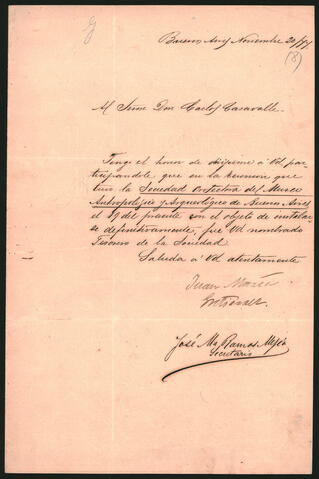 Buenos Aires Noviembre 20/77
(8)
Al Señor Don Carlos Casavalle.
Tengo el honor de dirijirme á Vd par
ticipandole, que en la reunion que
tuvo la Sociedad Protectora del Museo
Antropologico y Arqueológico de Buenos Aires
el 19 del presente con el objeto de instalar
se definitivamente, fué Vd nombrado
Tesorero de la Sociedad.
Saluda á Vd atentamente
Juan María
Gutierrez
José Ma. Ramos Mejía
Secretario